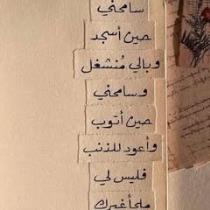 سامحني
حين أسجد
وبالي مُنشغل
وسامحني
حين أتوب
وأعود للذنب
فليس لي
ملجأ غيرك